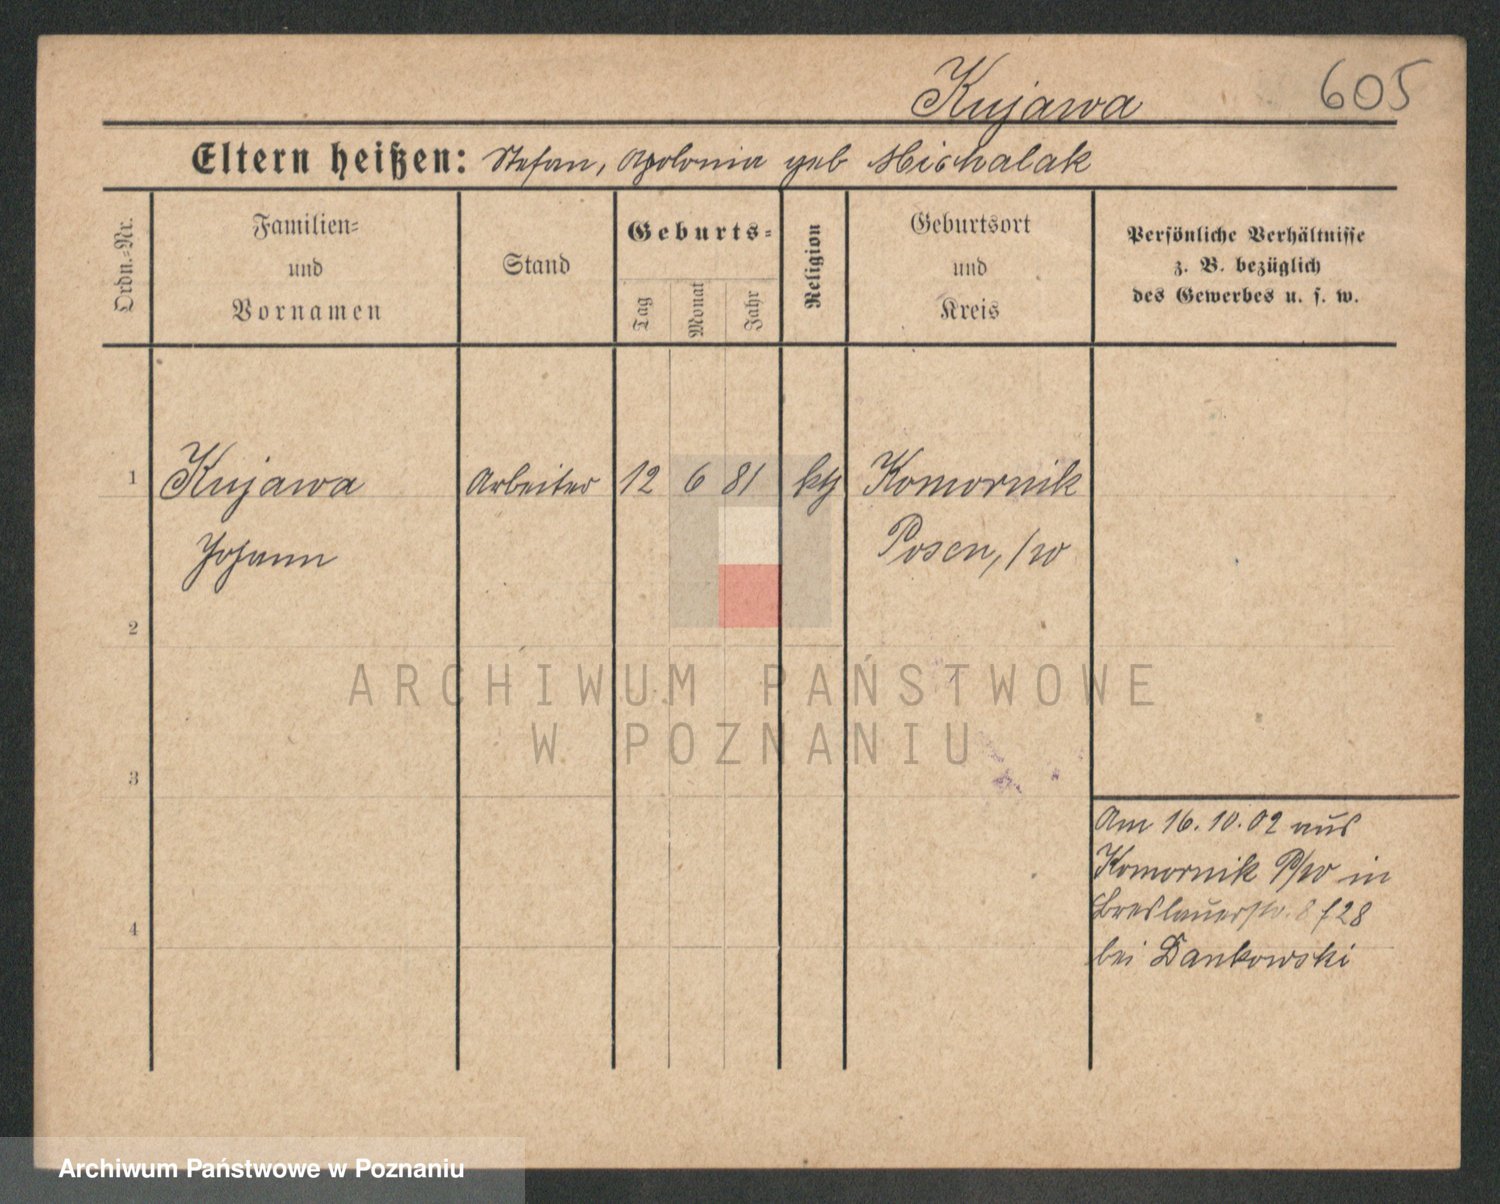 Kujawa 605
Eltern heißen: Stefan, Apolonia geb Michalak
Ordn.-Nr.
Familien-
und
Vornamen
Stand
Geburts-
Tag
Monat
Jahr
Religion
Geburtsort
und
Kreis
Persönliche Verhältnisse
z. B. bezüglich
des Gewerbes u. s. w.
1 Kujawa Arbeiter 12 6 81 kth Komornik
Johann Posen, /w
2
ARCHIWUM PAŃSTWOWE
W POZNANIU
3
Am 16.10.02 aus
Komornik P/w in
Breslauerstr. 8 f28
4
bei Dankowski
Archiwum Państwowe w Poznaniu